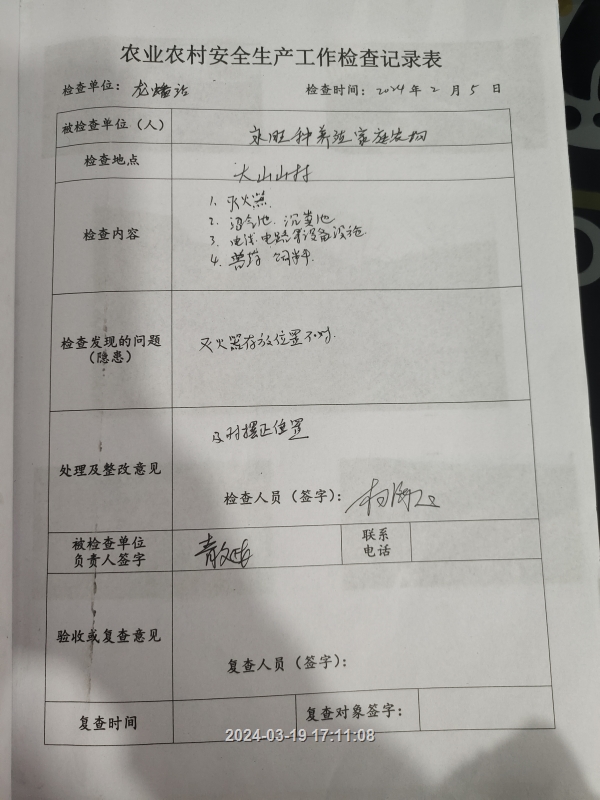 农业农村安全生产工作检查记录表
检查单位： 检查时间：2024年2月5日
被检查单位（人） 永旺种养殖家庭农场
检查地点 大山山村
检查内容
1. 灭火器
2. 沼气池、沉粪池
3. 电线、电路等设备设施
4. 兽药、饲料
检查发现的问题
（隐患）
灭火器存放位置不对.
处理及整改意见
及时摆正位置
检查人员（签字）：
被检查单位
负责人签字
联系
电话
验收或复查意见
复查人员（签字）：
复查时间 复查对象签字：
2024-03-19 17:11:08